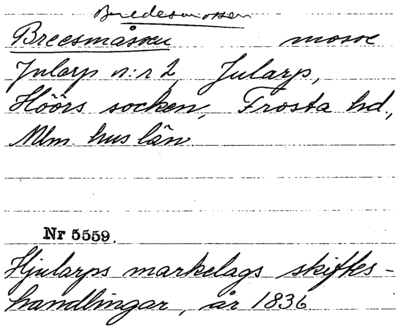 Bredesmossen
Breesmåsen mosse
Jularp n:r 2, Jularp,
Höörs socken, Frosta hd,
Mlm. hus län
Nr 5559.
Hjularps markelags skiftes-
handlingar, år 1836